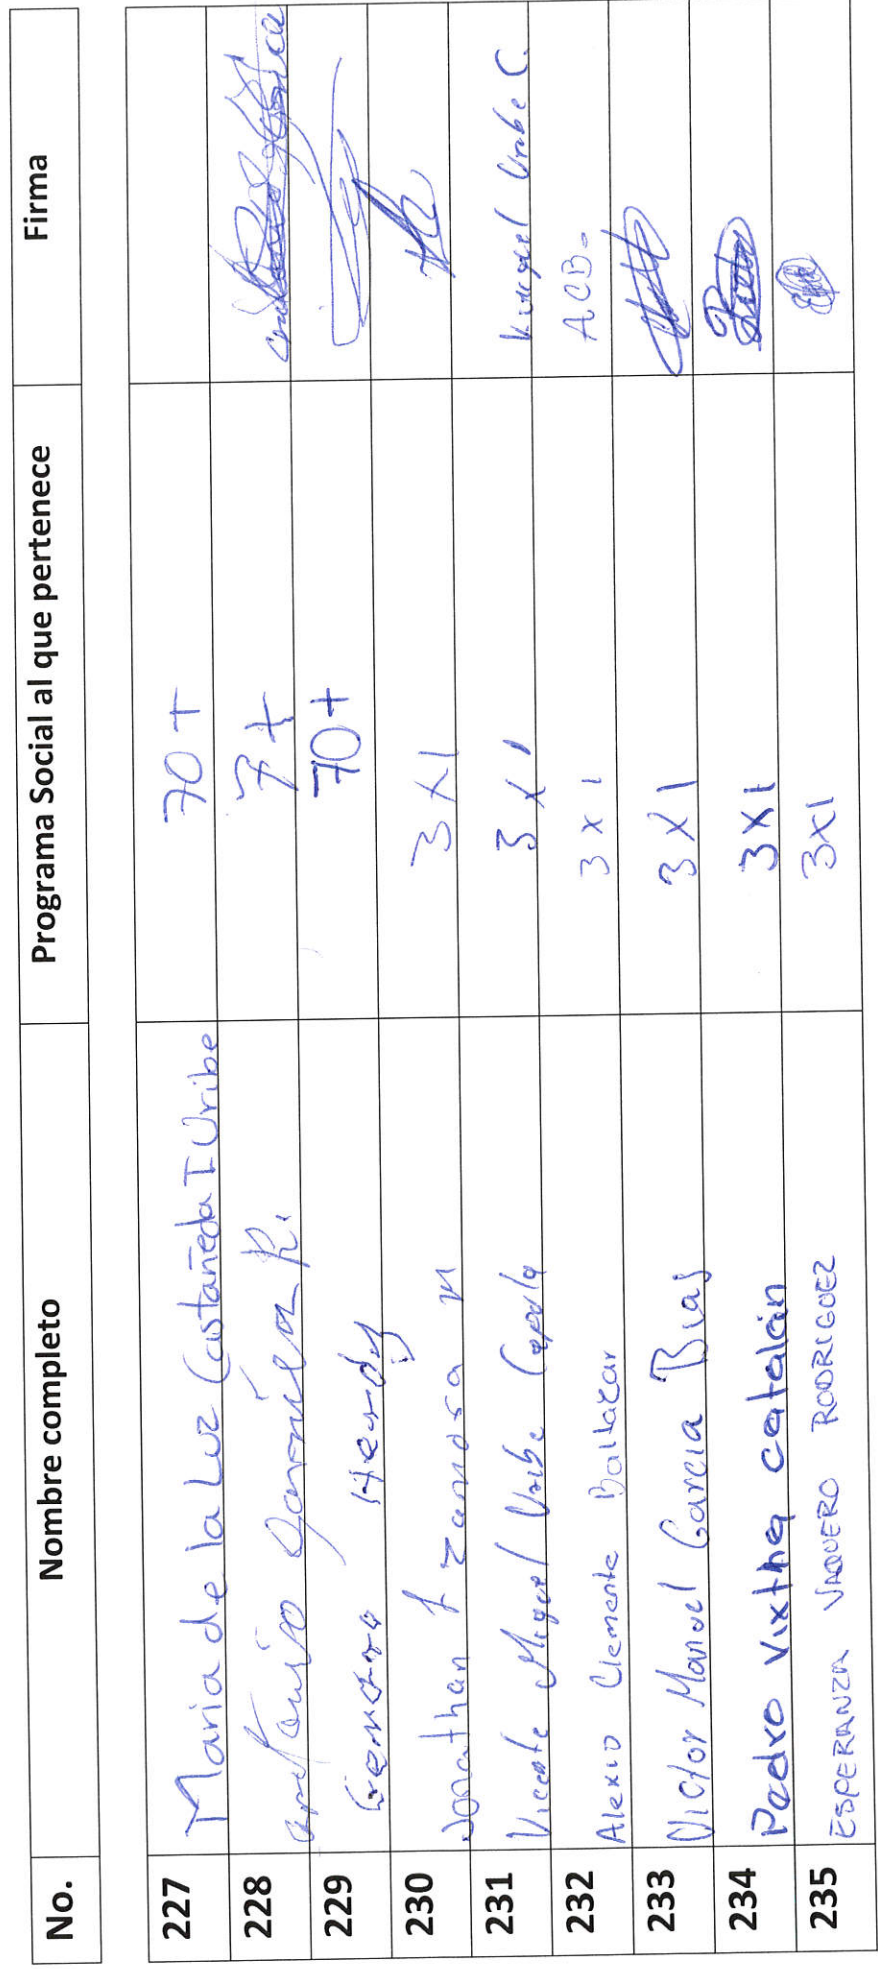 No. Nombre completo Programa Social al que pertenece Firma
227 Maria de la Luz Castañeda I Uribe 70+
228 Antonio R. 7+
229 Genaro 70+
230 Jonathan f Zamora M 3X1
231 Vicente Miguel Uribe 3X1 Uribe C.
232 Alexio Clemente Baltazar 3x1 ACB.
233 Victor Manuel Garcia Blas 3X1
234 Pedro Vixtha catalán 3X1
235 ESPERANZA VAQUERO RODRIGUEZ 3X1